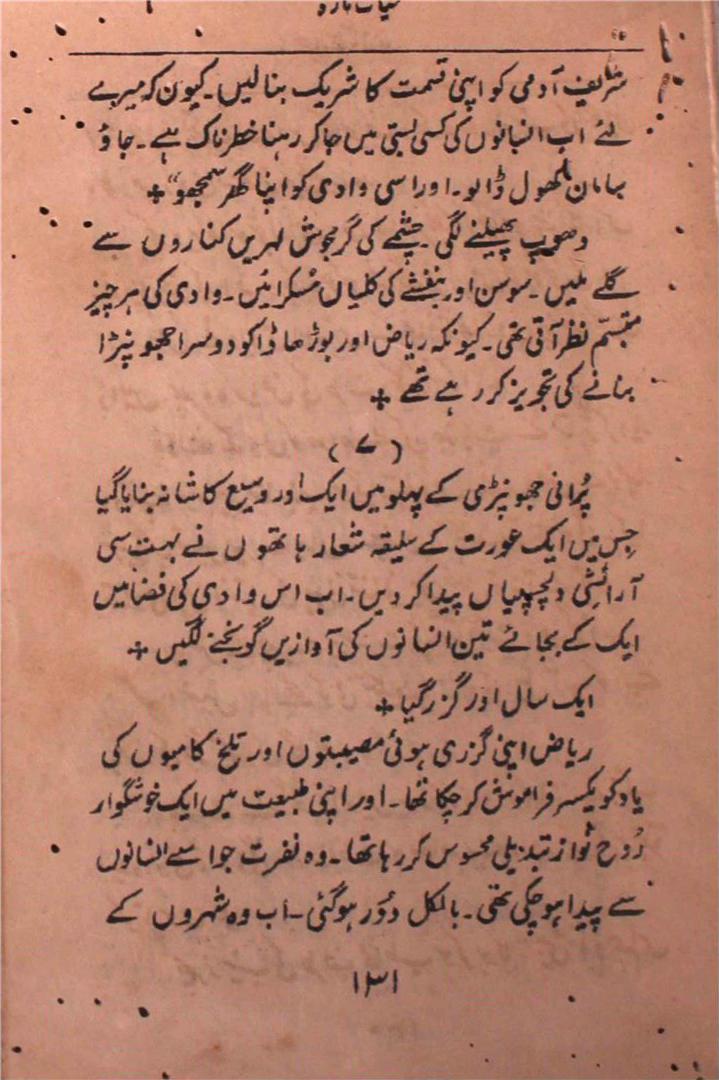 شریف آدمی کو اپنی قسمت کا شریک بنا لیں۔ کیون کہ میرے
لئے اب انسانوں کی کسی بستی میں جا کر رہنا خطرناک ہے۔ جاؤ
سامان کھول ڈالو۔ اور اسی وادی کو اپنا گھر سمجھو" +
دھوپ پھیلنے لگی۔ چشمے کی گرمجوش لہریں کناروں سے
گلے ملیں۔ سوسن اور بنفشے کی کلیاں مُسکرائیں۔ وادی کی ہر چیز
متبسّم نظر آتی تھی۔ کیونکہ ریاض اور بوڑھا ڈاکو دوسرا جھونپڑا
بنانے کی تجویز کر رہے تھے +
(۷)
پُرانی جھونپڑی کے پہلو میں ایک اور وسیع کاشانہ بنایا گیا
جس میں ایک عورت کے سلیقہ شعار ہاتھوں نے بہت سی
آرائشی دلچسپیاں پیدا کر دیں۔ اب اس وادی کی فضا میں
ایک کے بجائے تین انسانوں کی آوازیں گونجنے لگیں +
ایک سال اور گزر گیا +
ریاض اپنی گزری ہوئی مصیبتوں اور تلخ کامیوں کی
یاد کو یکسر فراموش کر چکا تھا۔ اور اپنی طبیعت میں ایک خوشگوار
رُوح نواز تبدیلی محسوس کر رہا تھا۔ وہ نفرت جو اسے انسانوں
سے پیدا ہو چکی تھی۔ بالکل دُور ہو گئی۔ اب وہ شہروں کے
۱۳۱